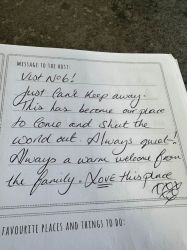 MESSAGE TO THE HOST:
Visit No6!
Just Can't keep away.
This has become our place
to come and shut the
world out. Always quiet!
Always a warm welcome from
the family. LOVE this place
FAVOURITE PLACES AND THINGS TO DO: